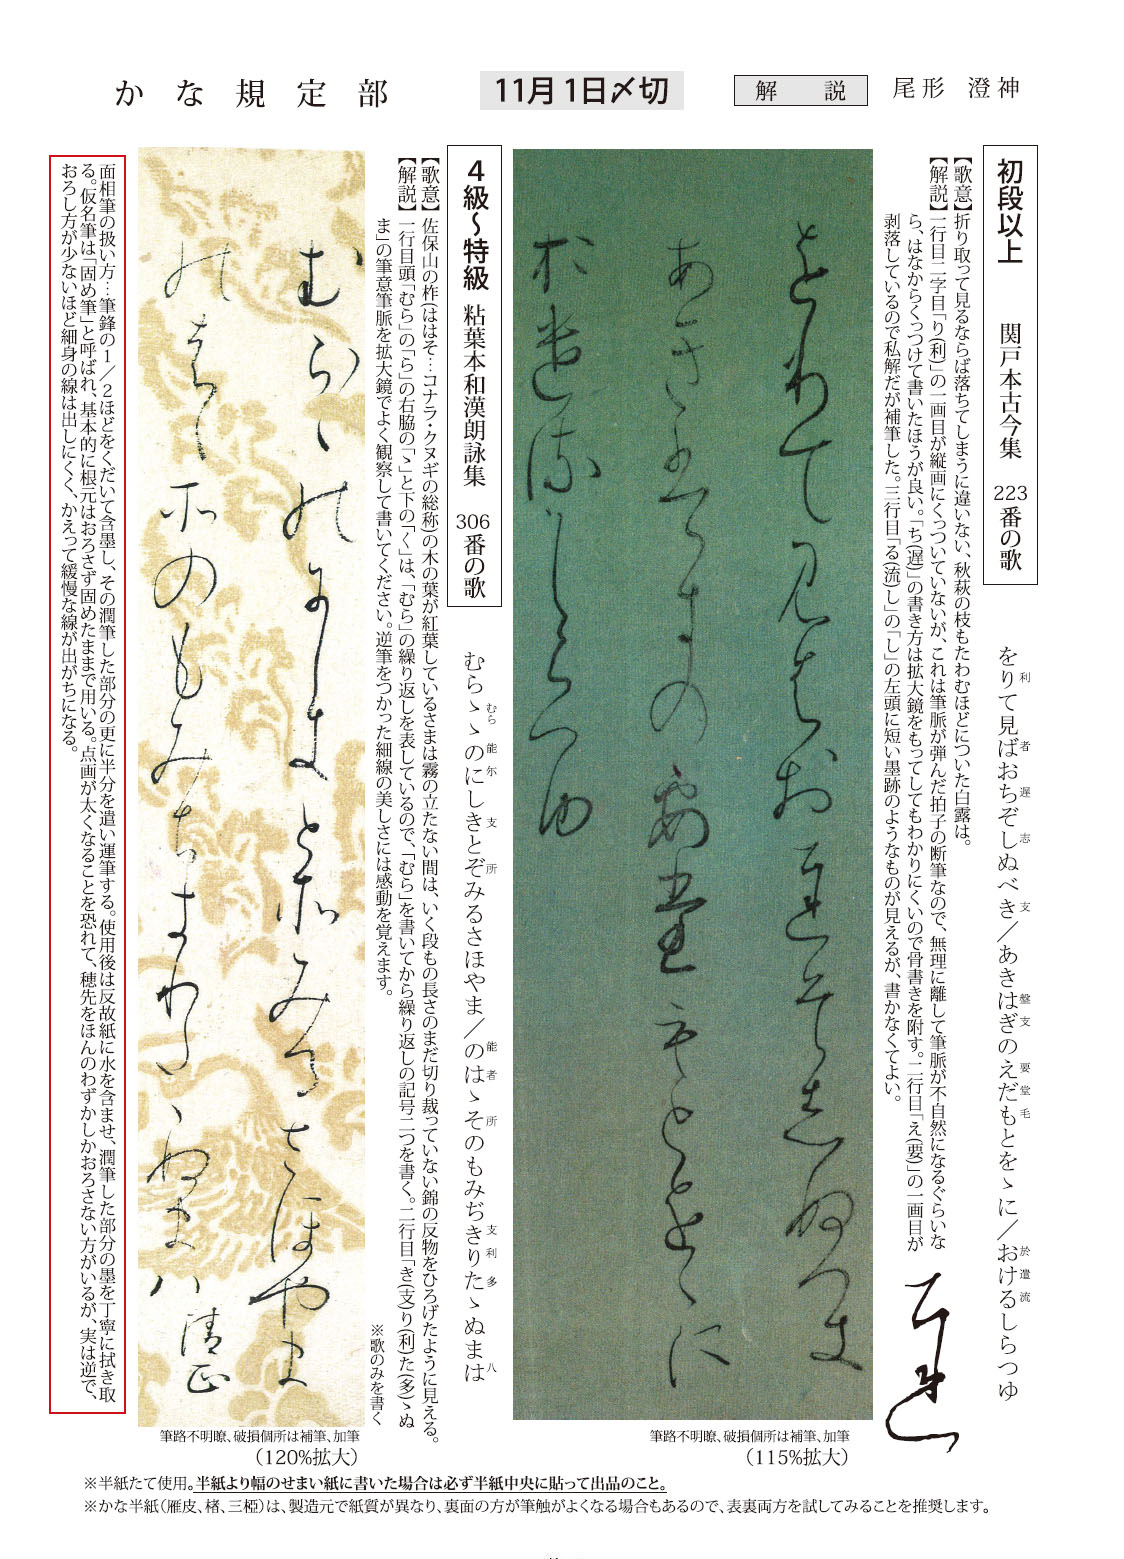 かな規定部
11月1日〆切
解　説
尾形　澄神
初段以上　関戸本古今集　223番の歌
をりて見ばおちぞしぬべき／あきはぎのえだもとをゝに／おけるしらつゆ
利　者　遅　志　支　盤　支　要　堂　毛　於　遣　流
【歌意】折り取って見るならば落ちてしまうに違いない、秋萩の枝もたわむほどについた白露は。
【解説】一行目二字目「り(利)」の一画目が縦画にくっついていないが、これは筆脈が弾んだ拍子の断筆なので、無理に離して筆脈が不自然になるぐらいな
ら、はなからくっつけて書いたほうが良い。「ち(遅)」の書き方は拡大鏡をもってしてもわかりにくいので骨書きを附す。二行目「え(要)」の一画目が
剥落しているので私解だが補筆した。三行目「る(流)し」の「し」の左頭に短い墨跡のようなものが見えるが、書かなくてよい。
をりて見者お遅そ志ぬへ支
あき盤支の要堂毛とをゝに
於遣流しらつゆ
筆路不明瞭、破損個所は補筆、加筆
（115%拡大）
4級～特級　粘葉本和漢朗詠集　306番の歌
むらゝゝのにしきとぞみるさほやま／のはゝそのもみぢきりたゝぬまは
むら　能　尓　支　所　能　者　所　支　利　多　八
【歌意】佐保山の柞(ははそ…コナラ・クヌギの総称)の木の葉が紅葉しているさまは霧の立たない間は、いく段もの長さのまだ切り裁っていない錦の反物をひろげたように見える。
【解説】一行目頭「むら」の「ら」の右脇の「ゝ」と下の「く」は、「むら」の繰り返しを表しているので、「むら」を書いてから繰り返しの記号二つを書く。二行目「き(支)り(利)た(多)ゝぬ
ま」の筆意筆脈を拡大鏡でよく観察して書いてください。逆筆をつかった細線の美しさには感動を覚えます。
※歌のみを書く
むらゝゝ能尓し支と所みるさほやま
能者ゝ所のもみち支利多ゝぬま八
清正
筆路不明瞭、破損個所は補筆、加筆
（120%拡大）
面相筆の扱い方…筆鋒の1／2ほどをくだいて含墨し、その潤筆した部分の更に半分を遣い運筆する。使用後は反故紙に水を含ませ、潤筆した部分の墨を丁寧に拭き取
る。仮名筆は「固め筆」と呼ばれ、基本的に根元はおろさず固めたままで用いる。点画が太くなることを恐れて、穂先をほんのわずかしかおろさない方がいるが、実は逆で、
おろし方が少ないほど細身の線は出しにくく、かえって緩慢な線が出がちになる。
※半紙たて使用。半紙より幅のせまい紙に書いた場合は必ず半紙中央に貼って出品のこと。
※かな半紙（雁皮、楮、三椏）は、製造元で紙質が異なり、裏面の方が筆触がよくなる場合もあるので、表裏両方を試してみることを推奨します。